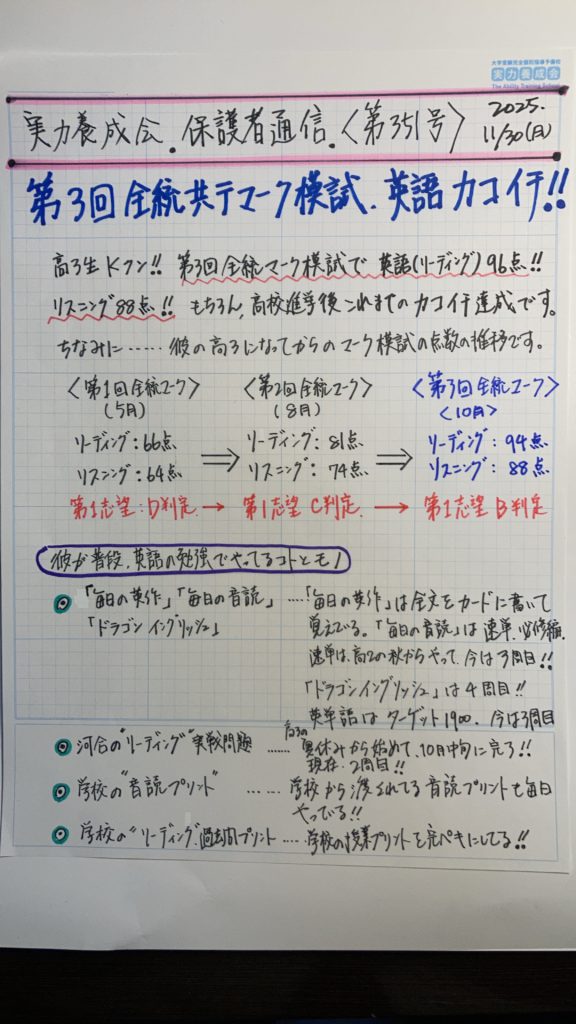 大学受験完全個別指導予備校
実力養成会
The Ability Training School
実力養成会.保護者通信.〈第351号〉
2025.
11/30(月)
第3回全統共テマーク模試.英語カコイチ!!
高3生Kクン!! 第3回全統マーク模試で 英語(リーディング)96点!!
リスニング88点!! もちろん,高校進学後これまでのカコイチ達成です。
ちなみに……彼の高3になってからのマーク模試の点数の推移です。
〈第1回全統マーク〉
(5月)
リーディング:66点
リスニング:64点
⇒
〈第2回全統マーク〉
(8月)
リーディング:81点
リスニング:74点
⇒
〈第3回全統マーク〉
〈10月〉
リーディング:94点
リスニング:88点
第1志望:D判定. → 第1志望 C判定. → 第1志望 B判定
彼が普段,英語の勉強でやってるコトとモノ
◎「毎日の英作」「毎日の音読」
「ドラゴンイングリッシュ」
……「毎日の英作」は全文をカードに書いて
覚えている。「毎日の音読」は速単.必修編.
速単は,高2の秋からやって、今は3周目!!
「ドラゴンイングリッシュ」は4周目!!
英単語は ターゲット1900. 今は3周目
◎ 河合の"リーディング"実戦問題 ……高3の夏休みから始めて、10月中旬に完了!!
現在.2周目!!
◎ 学校の"音読プリント" …… 学校から渡されてる音読プリントも毎日
やっている!!
◎ 学校の"リーディング.過去問プリント ……学校の授業プリントを完ペキにしてる!!